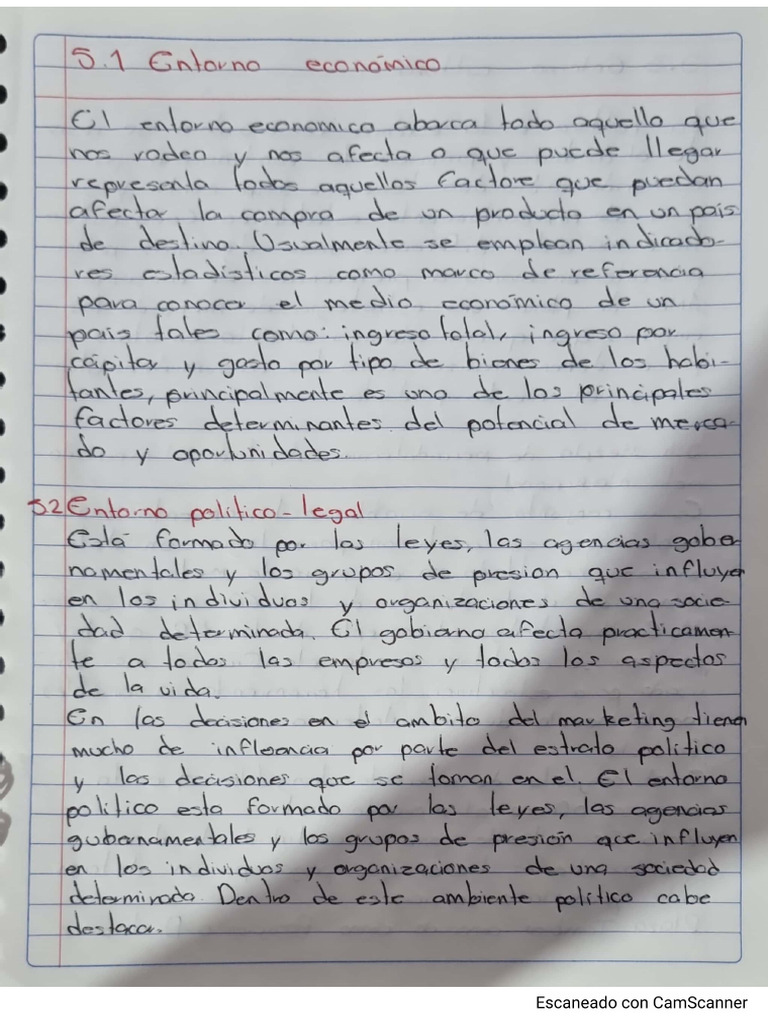 5.1 Entorno económico
El entorno economico abarca todo aquello que
nos rodea y nos afecta o que puede llegar
representa todos aquellos factore que puedan
afectar la compra de un producto en un pais
de destino. Usualmente se emplean indicado-
res estadísticos como marco de referencia
para conocer el medio económico de un
pais tales como: ingreso total, ingreso por
cápita y gasto por tipo de bienes de los habi-
tantes, principalmente es uno de los principales
factores determinantes del potencial de merca-
do y oportunidades.
5.2 Entorno politico-legal
Está formado por las leyes, las agencias gober
namentales y los grupos de presion que influyen
en los individuos y organizaciones de una socie-
dad determinada. El gobierno afecta practicamen-
te a todas las empresas y todos los aspectos
de la vida.
En las decisiones en el ambito del marketing tienen
mucho de influencia por parte del estrato politico
y las decisiones que se toman en el. El entorno
politico esta formado por las leyes, las agencias
gubernamentales y los grupos de presición que influyen
en los individuos y organizaciones de una sociedad
determinada. Dentro de este ambiente político cabe
destacar.
Escaneado con CamScanner